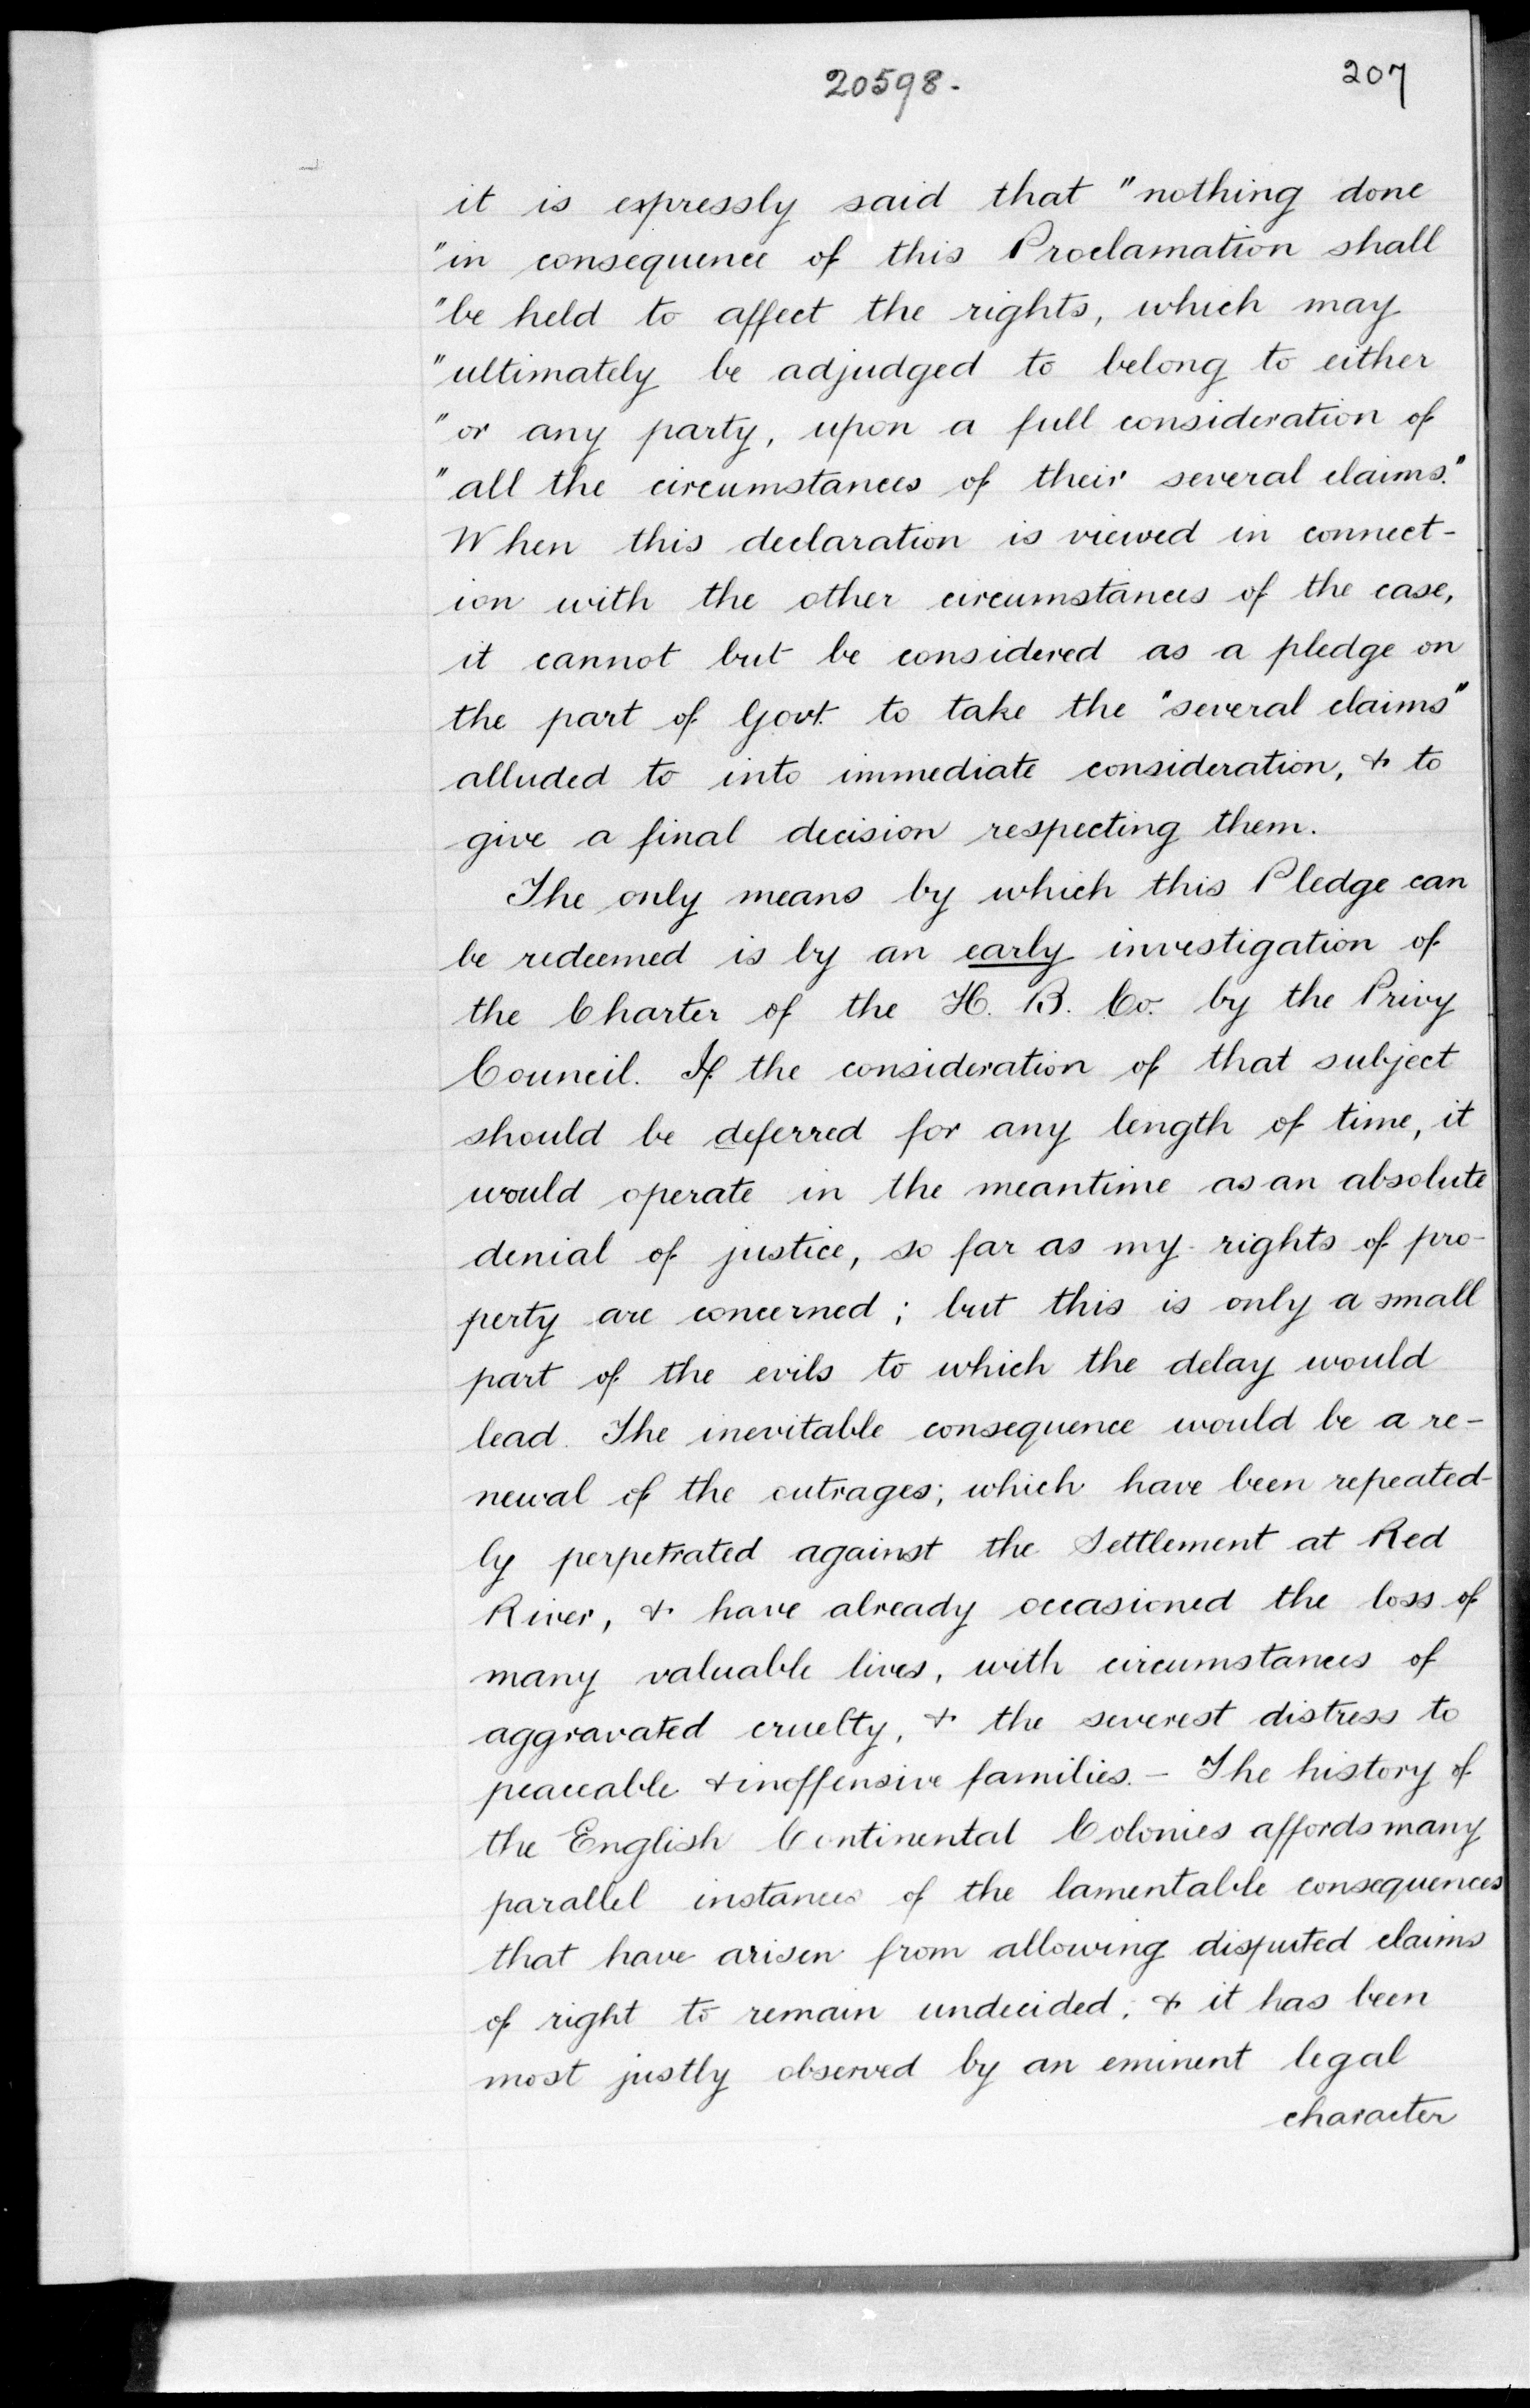 20598.
207
it is expressly said that "nothing done
"in consequence of this Proclamation shall
"be held to affect the rights, which may
"ultimately be adjudged to belong to either
"or any party, upon a full consideration of
"all the circumstances of their several claims."
When this declaration is viewed in connect-
ion with the other circumstances of the case,
it cannot but be considered as a pledge on
the part of Govt. to take the "several claims"
alluded to into immediate consideration, & to
give a final decision respecting them.
The only means by which this Pledge can
be redeemed is by an early investigation of
the Charter of the H. B. Co. by the Privy
Council. If the consideration of that subject
should be deferred for any length of time, it
would operate in the meantime as an absolute
denial of justice, so far as my rights of pro-
perty are concerned; but this is only a small
part of the evils to which the delay would
lead. The inevitable consequence would be a re-
newal of the outrages; which have been repeated-
ly perpetrated against the Settlement at Red
River, & have already occasioned the loss of
many valuable lives, with circumstances of
aggravated cruelty, & the severest distress to
peaceable & inoffensive families. - The history of
the English Continental Colonies affords many
parallel instances of the lamentable consequences
that have arisen from allowing disputed claims
of right to remain undecided; & it has been
most justly observed by an eminent legal
character